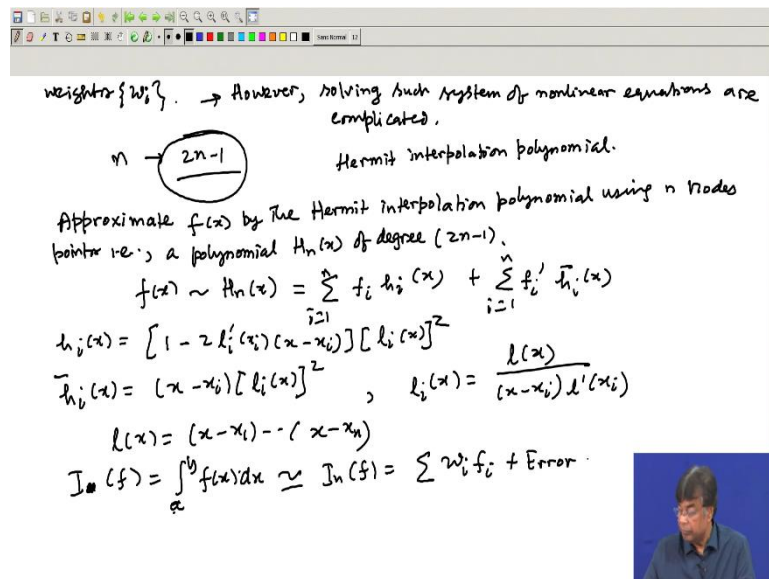 Sans Normal 12
weights {wᵢ}. → However, solving such system of nonlinear equations are
complicated.
n → 2n-1 Hermit interpolation polynomial.
Approximate f(x) by The Hermit interpolation polynomial using n nodes
points i.e., a polynomial Hₙ(x) of degree (2n-1).
f(x) ~ Hₙ(x) = Σⁿᵢ₌₁ fᵢ hᵢ(x) + Σⁿᵢ₌₁ fᵢ' h̄ᵢ(x)
hᵢ(x) = [1 - 2 lᵢ'(xᵢ)(x-xᵢ)][lᵢ(x)]²
h̄ᵢ(x) = (x-xᵢ)[lᵢ(x)]² , lᵢ(x) = l(x) / (x-xᵢ) l'(xᵢ)
l(x) = (x-x₁) -- (x-xₙ)
I(f) = ∫ₐᵇ f(x) dx ≃ Iₙ(f) = Σ wᵢ fᵢ + Error.